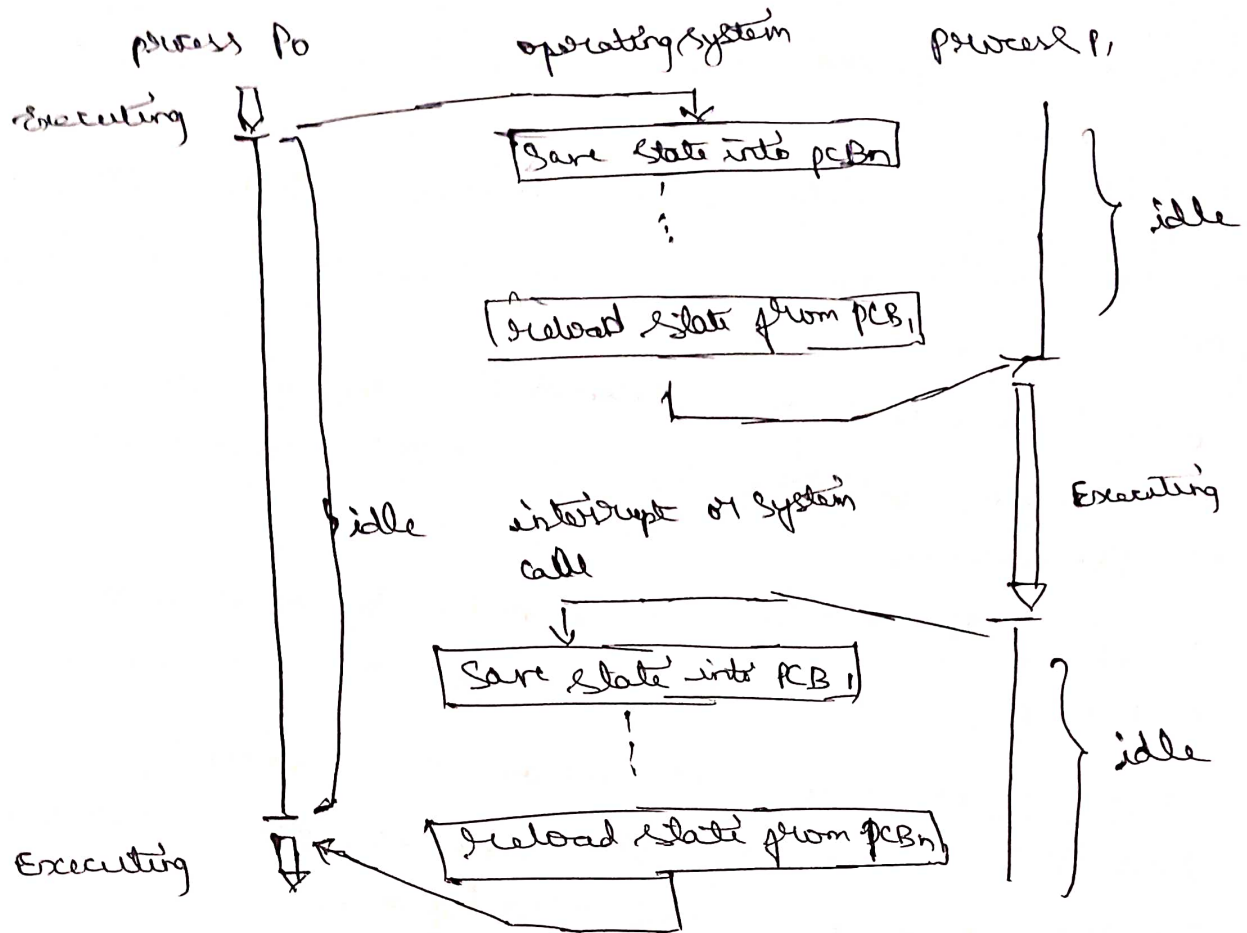 process P0 operating system process P1
Executing
Save state into PCBn
idle
reload state from PCB1
Executing
idle interrupt or system
call
Save state into PCB1
idle
reload state from PCBn
Executing